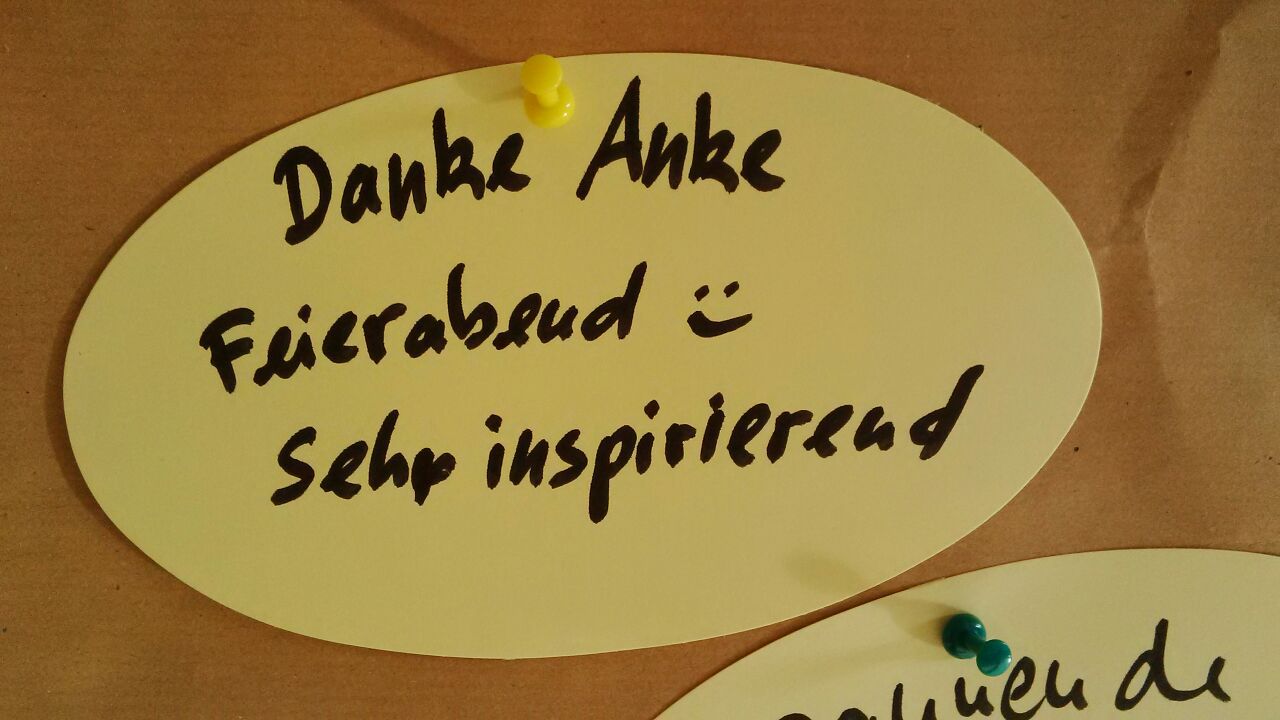 Danke Anke
Feierabend :)
Sehr inspirierend